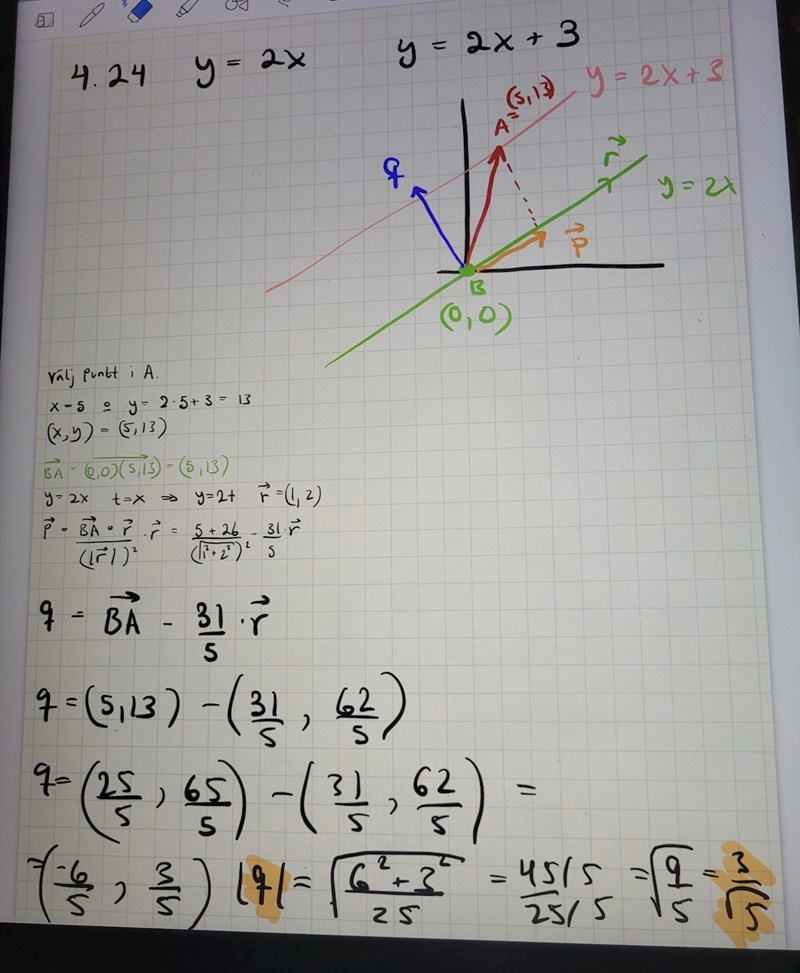 4.24 y = 2x y = 2x + 3
y = 2x + 3
(5,13)
A =
q
r⃗
y = 2x
p⃗
B
(0,0)
Välj punkt i A.
x - 5 ⇒ y = 2·5+3 = 13
(x,y) = (5,13)
BA⃗ - (0,0)(5,13) = (5,13)
y = 2x t = x ⇒ y = 2t r⃗ = (1,2)
p⃗ - BA⃗ • r⃗ / (|r⃗|)² · r⃗ = 5 + 26 / (√1²+2²)² - 31/5 · r⃗
q = BA⃗ - 31/5 · r⃗
q = (5,13) - (31/5, 62/5)
q = (25/5, 65/5) - (31/5, 62/5) =
= (-6/5, 3/5) |q| = √6²+3²/25 = 45/5 / 25/5 = √9/5 = 3/√5